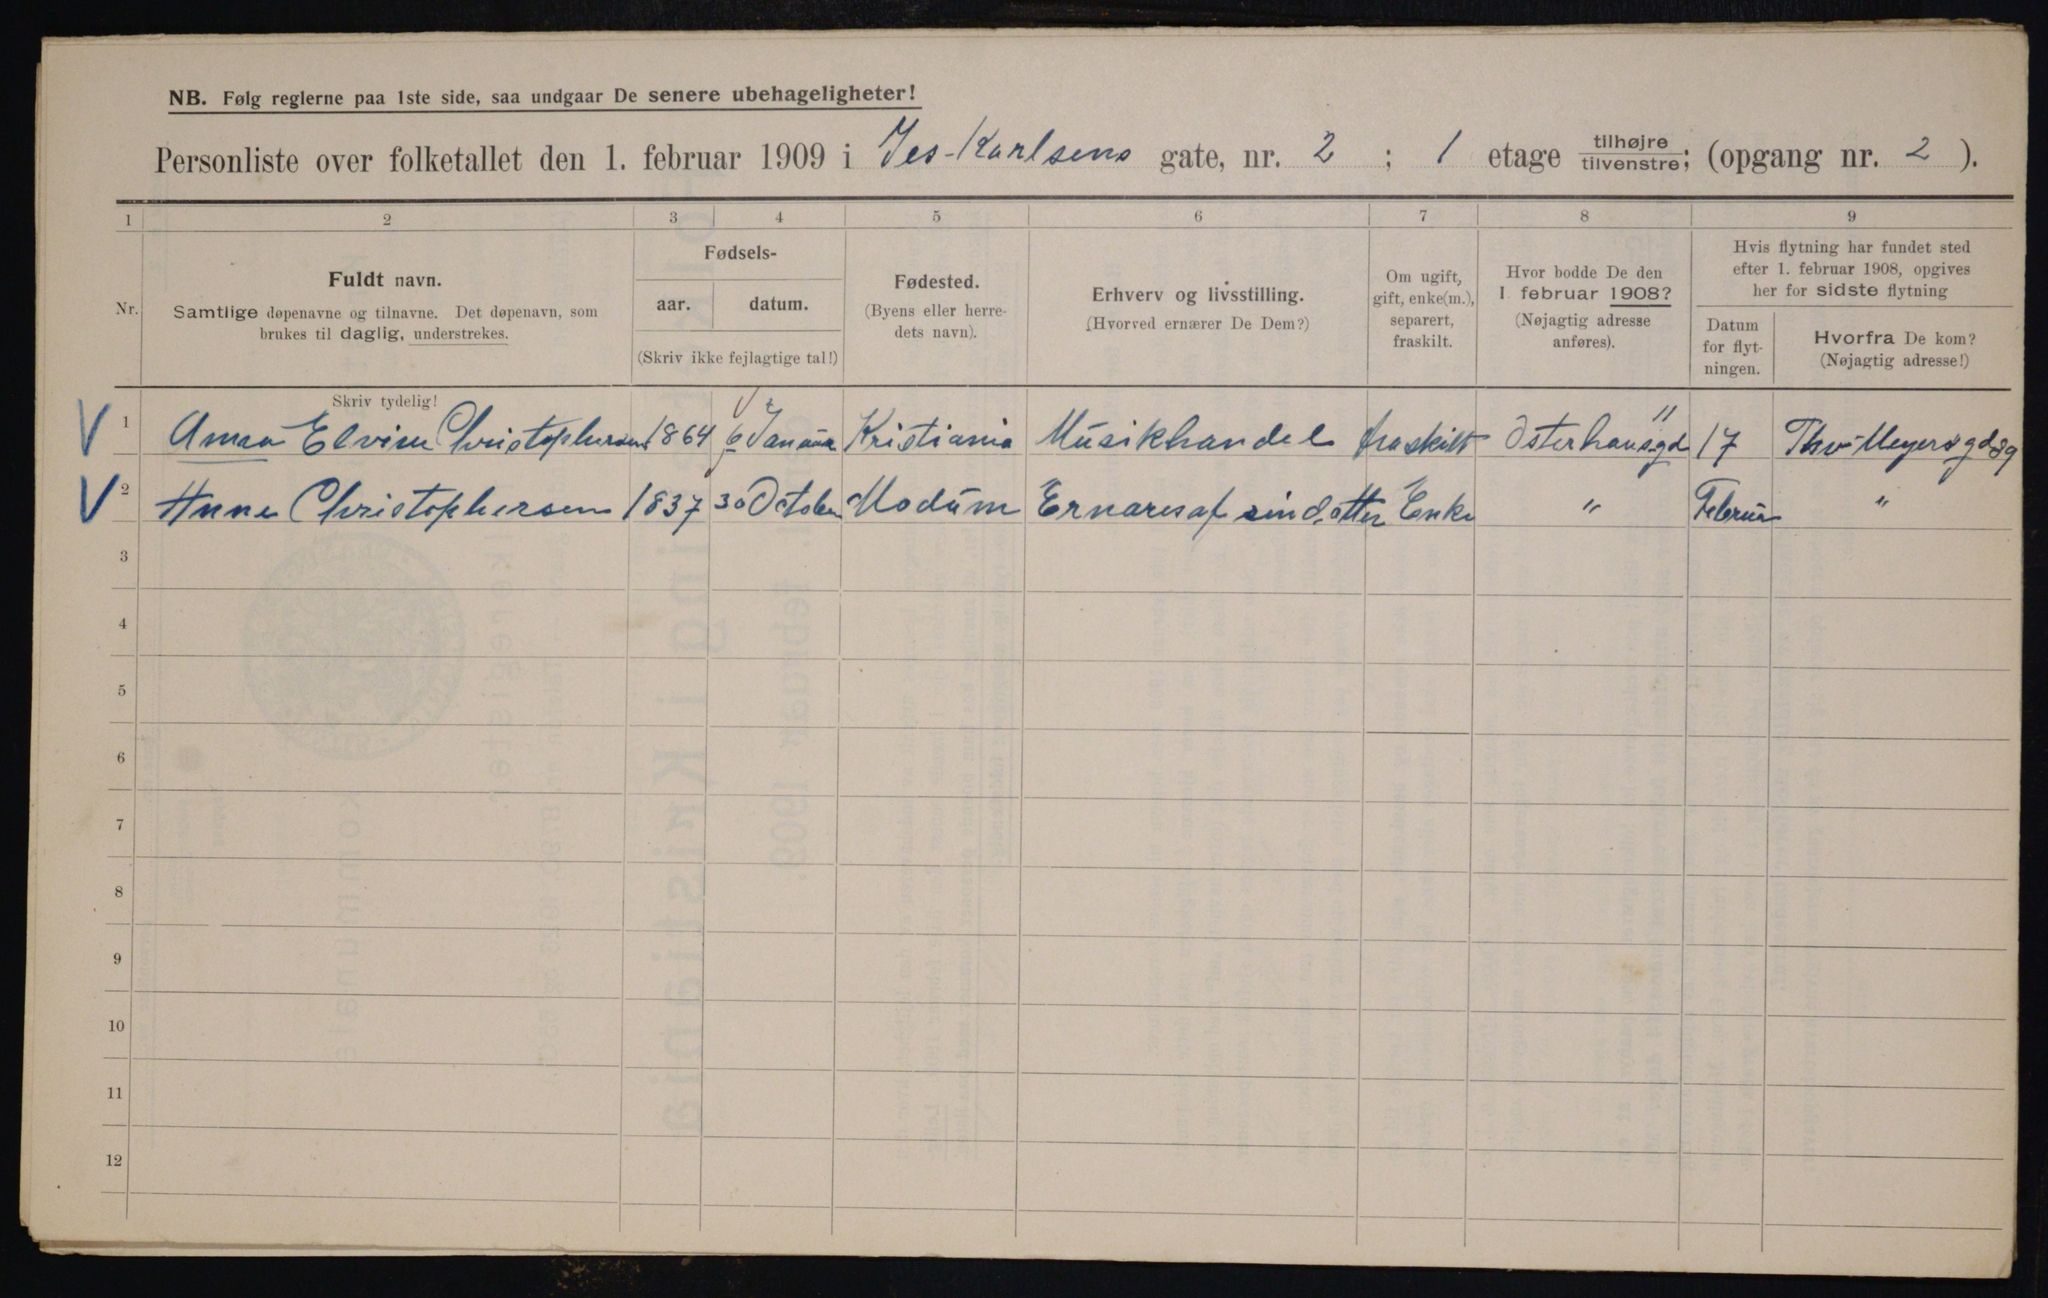 NB. Følg reglerne paa 1ste side, saa undgaar De senere ubehageligheter!
Personliste over folketallet den 1. februar 1909 i Jes-Karlsens gate, nr. 2 ; 1 etage tilhøjre/tilvenstre; (opgang nr. 2 ).
1 2 3 4 5 6 7 8 9
Nr.
Fuldt navn.
Samtlige døpenavne og tilnavne. Det døpenavn, som
brukes til daglig, understrekes.
Fødsels-
aar. datum.
(Skriv ikke fejlagtige tal!)
Fødested.
(Byens eller herre-
dets navn).
Erhverv og livsstilling.
(Hvorved ernærer De Dem?)
Om ugift,
gift, enke(m.),
separert,
fraskilt.
Hvor bodde De den
1. februar 1908?
(Nøjagtig adresse
anføres).
Hvis flytning har fundet sted
efter 1. februar 1908, opgives
her for sidste flytning
Datum
for flyt-
ningen.
Hvorfra De kom?
(Nøjagtig adresse!)
Skriv tydelig!
V 1 Anna Elvine Christophersen 1864 6 Januar Kristiania Musikhandel fraskilt Osterhausgd 11 17 Thv-Meyersgd 89
V 2 Anne Christophersen 1837 30 October Modum Ernæres af sin dotter Enke " Februar "
3
4
5
6
7
8
9
10
11
12